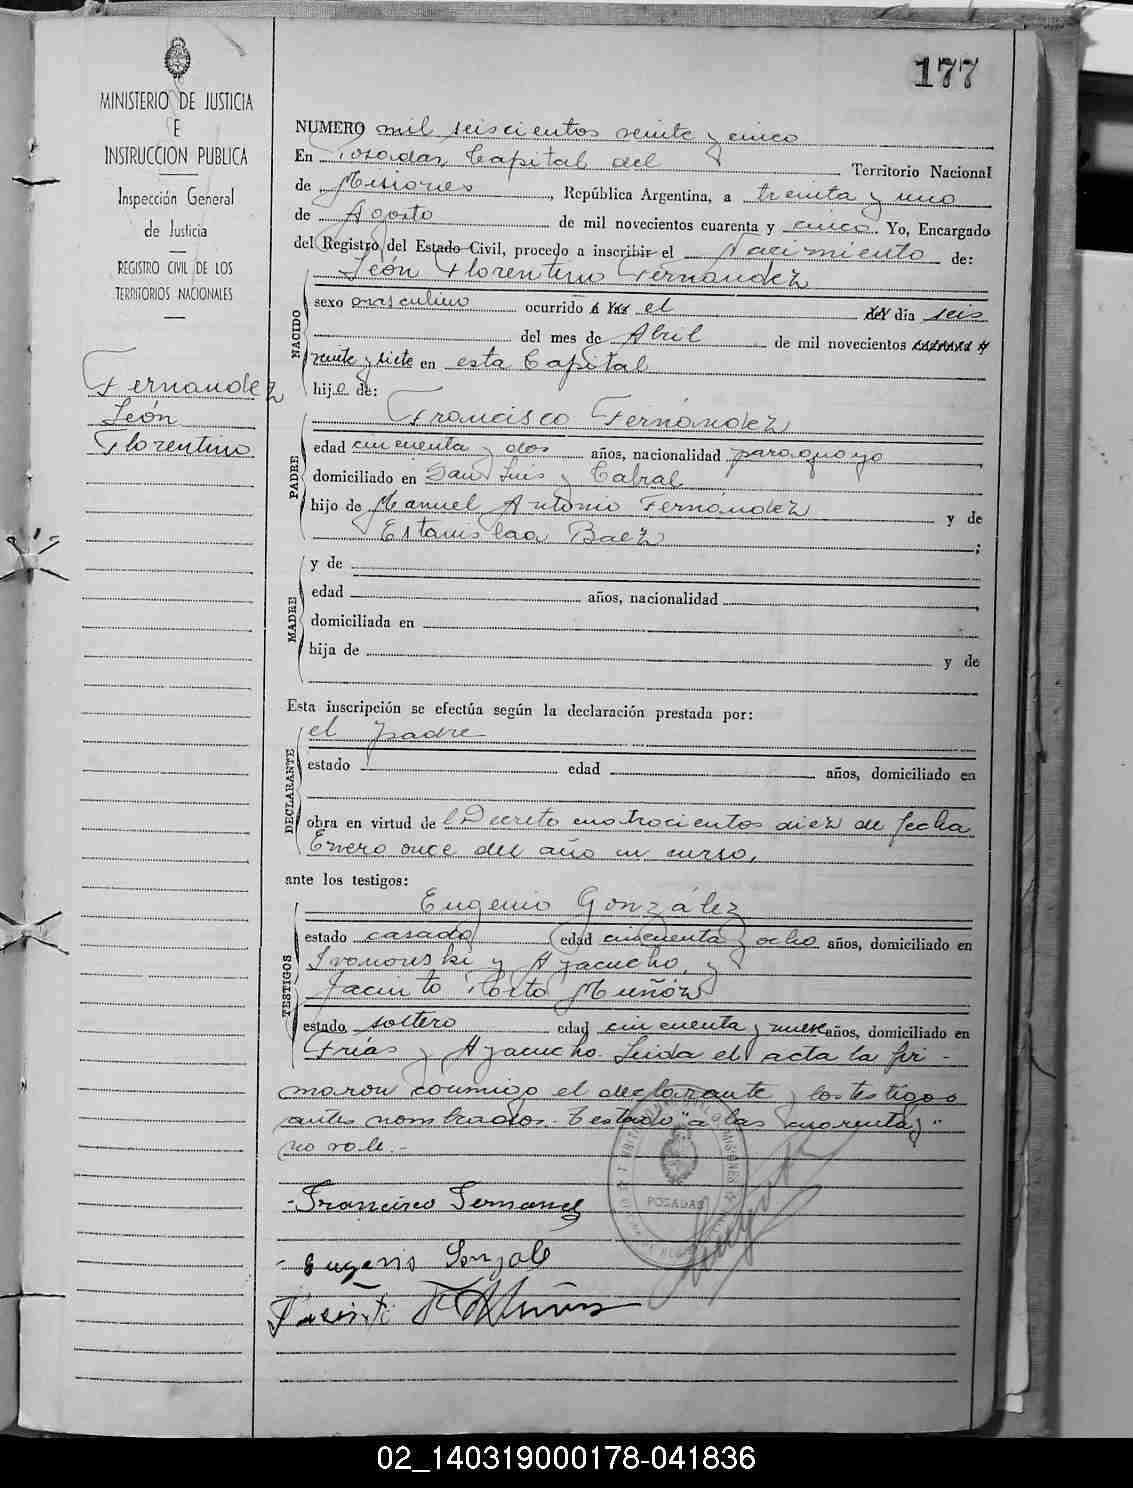 177
MINISTERIO DE JUSTICIA
E
INSTRUCCION PUBLICA
Inspección General
de Justicia
REGISTRO CIVIL DE LOS
TERRITORIOS NACIONALES
Fernandez
León
Florentino
NUMERO mil seiscientos veinte y cinco
En Posadas Capital del Territorio Nacional
de Misiones, República Argentina, a treinta y uno
de Agosto de mil novecientos cuarenta y cinco. Yo, Encargado
del Registro del Estado Civil, procedo a inscribir el Nacimiento de:
León Florentino Fernández
NACIDO
sexo masculino ocurrido a las el del día seis
del mes de Abril de mil novecientos cuarenta y
veinte y siete en esta Capital
hijo de:
Francisco Fernández
PADRE
edad cincuenta y dos años, nacionalidad paraguayo
domiciliado en San Luis y Cabral
hijo de Manuel Antonio Fernández y de
Estanislaa Baez ;
MADRE
y de
edad años, nacionalidad
domiciliada en
hija de y de
Esta inscripción se efectúa según la declaración prestada por:
el padre
DECLARANTE
estado edad años, domiciliado en
obra en virtud del Decreto cuatrocientos diez de fecha
Enero once del año en curso.
ante los testigos:
Eugenio González
TESTIGOS
estado casado edad cincuenta y ocho años, domiciliado en
y Ayacucho, y
Jacinto Muñóz
estado soltero edad cincuenta y nueve años, domiciliado en
Frías y Ayacucho. Leida el acta la fir-
maron conmigo el declarante y los testigos
antes nombrados. Testado "a las cuarenta y"
no vale.-
POSADAS
MISIONES
- Francisco Fernandez
- Eugenio Gonzale
02_140319000178-041836